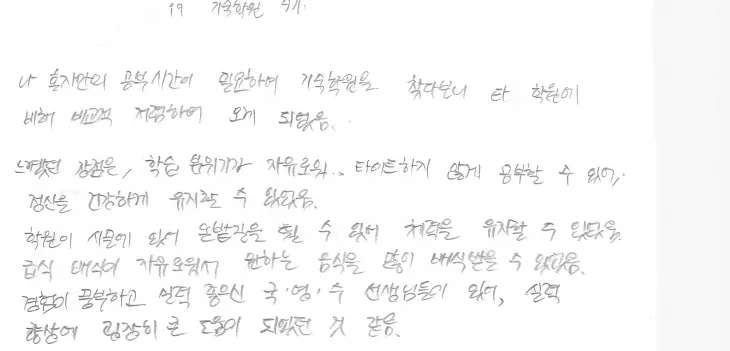 19 기숙학원 수기.
나 혼자만의 공부시간이 필요하여 기숙학원을 찾다보니 타 학원에
비해 비교적 저렴하여 오게 되었음.
느꼈던 장점은, 학습 분위기가 자유로워.. 타이트하지 않게 공부할 수 있어,
정신을 건강하게 유지할 수 있었음.
학원이 시골에 있어 운동을 할 수 있어 체력을 유지할 수 있었음.
급식 배식이 자유로워서 원하는 음식을 많이 배식받을 수 있었음.
경험이 풍부하고 실력 좋으신 국·영·수 선생님들이 있어, 실력
향상에 굉장히 큰 도움이 되었던 것 같음.